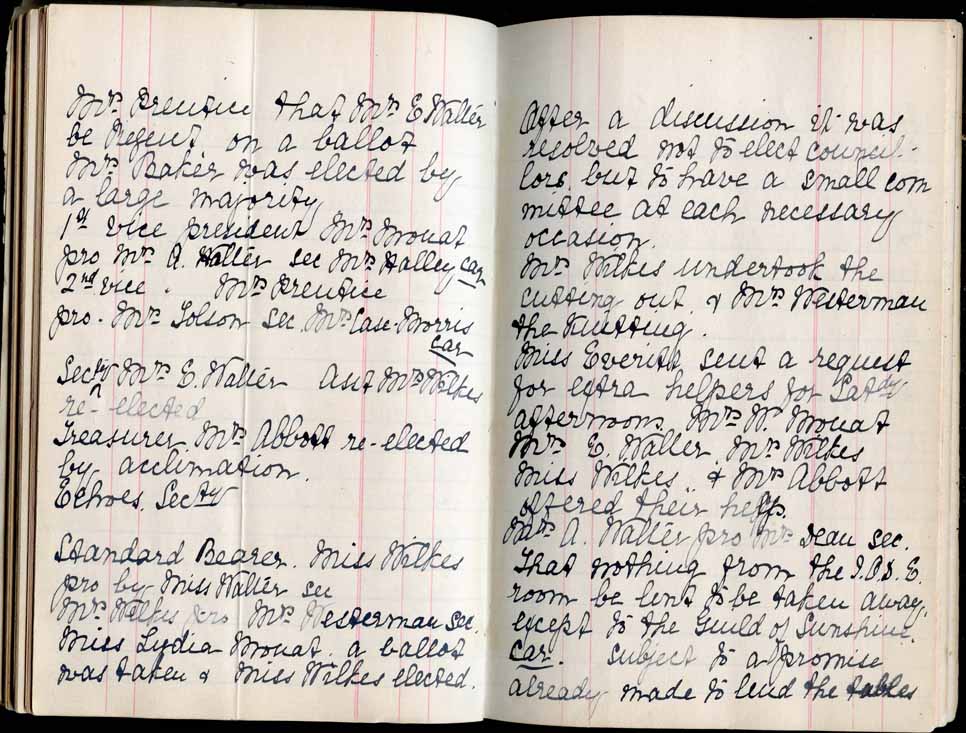 Mrs Prentice that Mrs E Waller
be Regent on a ballot
Mrs Baker was elected by
a large majority
1st vice president Mrs Mouat
pro Mrs A. Waller sec Mrs Halley car
2nd vice. Mrs Prentice
pro. Mrs Tolson sec. Mrs Case-Morris
car
Secty Mrs E. Waller Asst Mrs Wilkes
re-elected
Treasurer Mrs Abbott re-elected
by acclimation.
Echoes. Secty
Standard Bearer. Miss Wilkes
pro by Miss Waller sec
Mrs Wilkes pro Mrs Westerman sec.
Miss Lydia Mouat. a ballot
was taken & Miss Wilkes elected.
After a discussion it was
resolved not to elect council-
lors. but to have a small com
mittee at each necessary
occasion.
Mrs Wilkes undertook the
cutting out. & Mrs Westerman
the Knitting.
Miss Everitt sent a request
for extra helpers for Satdy
afternoon. Mrs W. Mouat
Mrs E. Waller. Mrs Wilkes
Miss Wilkes. & Mrs Abbott
offered their help.
Mrs A. Waller pro Mrs Dean sec.
That nothing from the I.O.D.E.
room be lent to be taken away.
except to the Guild of Sunshine.
car. subject to a promise
already made to lend the tables